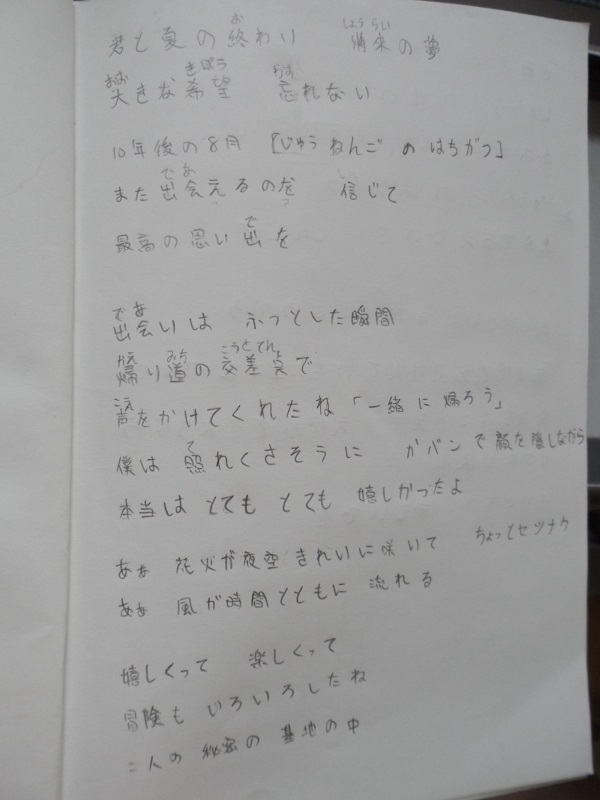 君と夏の終わり 将来の夢
大きな希望 忘れない
10年後の8月 [じゅうねんごのはちがつ]
また出会えるのを 信じて
最高の思い出を
出会いは ふっとした瞬間
帰り道の交差点で
声をかけてくれたね「一緒に帰ろう」
僕は 照れくさそうに カバンで顔を隠しながら
本当は とても とても 嬉しかったよ
あぁ 花火が夜空 きれいに咲いて ちょっとセツナク
あぁ 風が時間とともに 流れる
嬉しくって 楽しくって
冒険も いろいろしたね
二人の 秘密の 基地の中